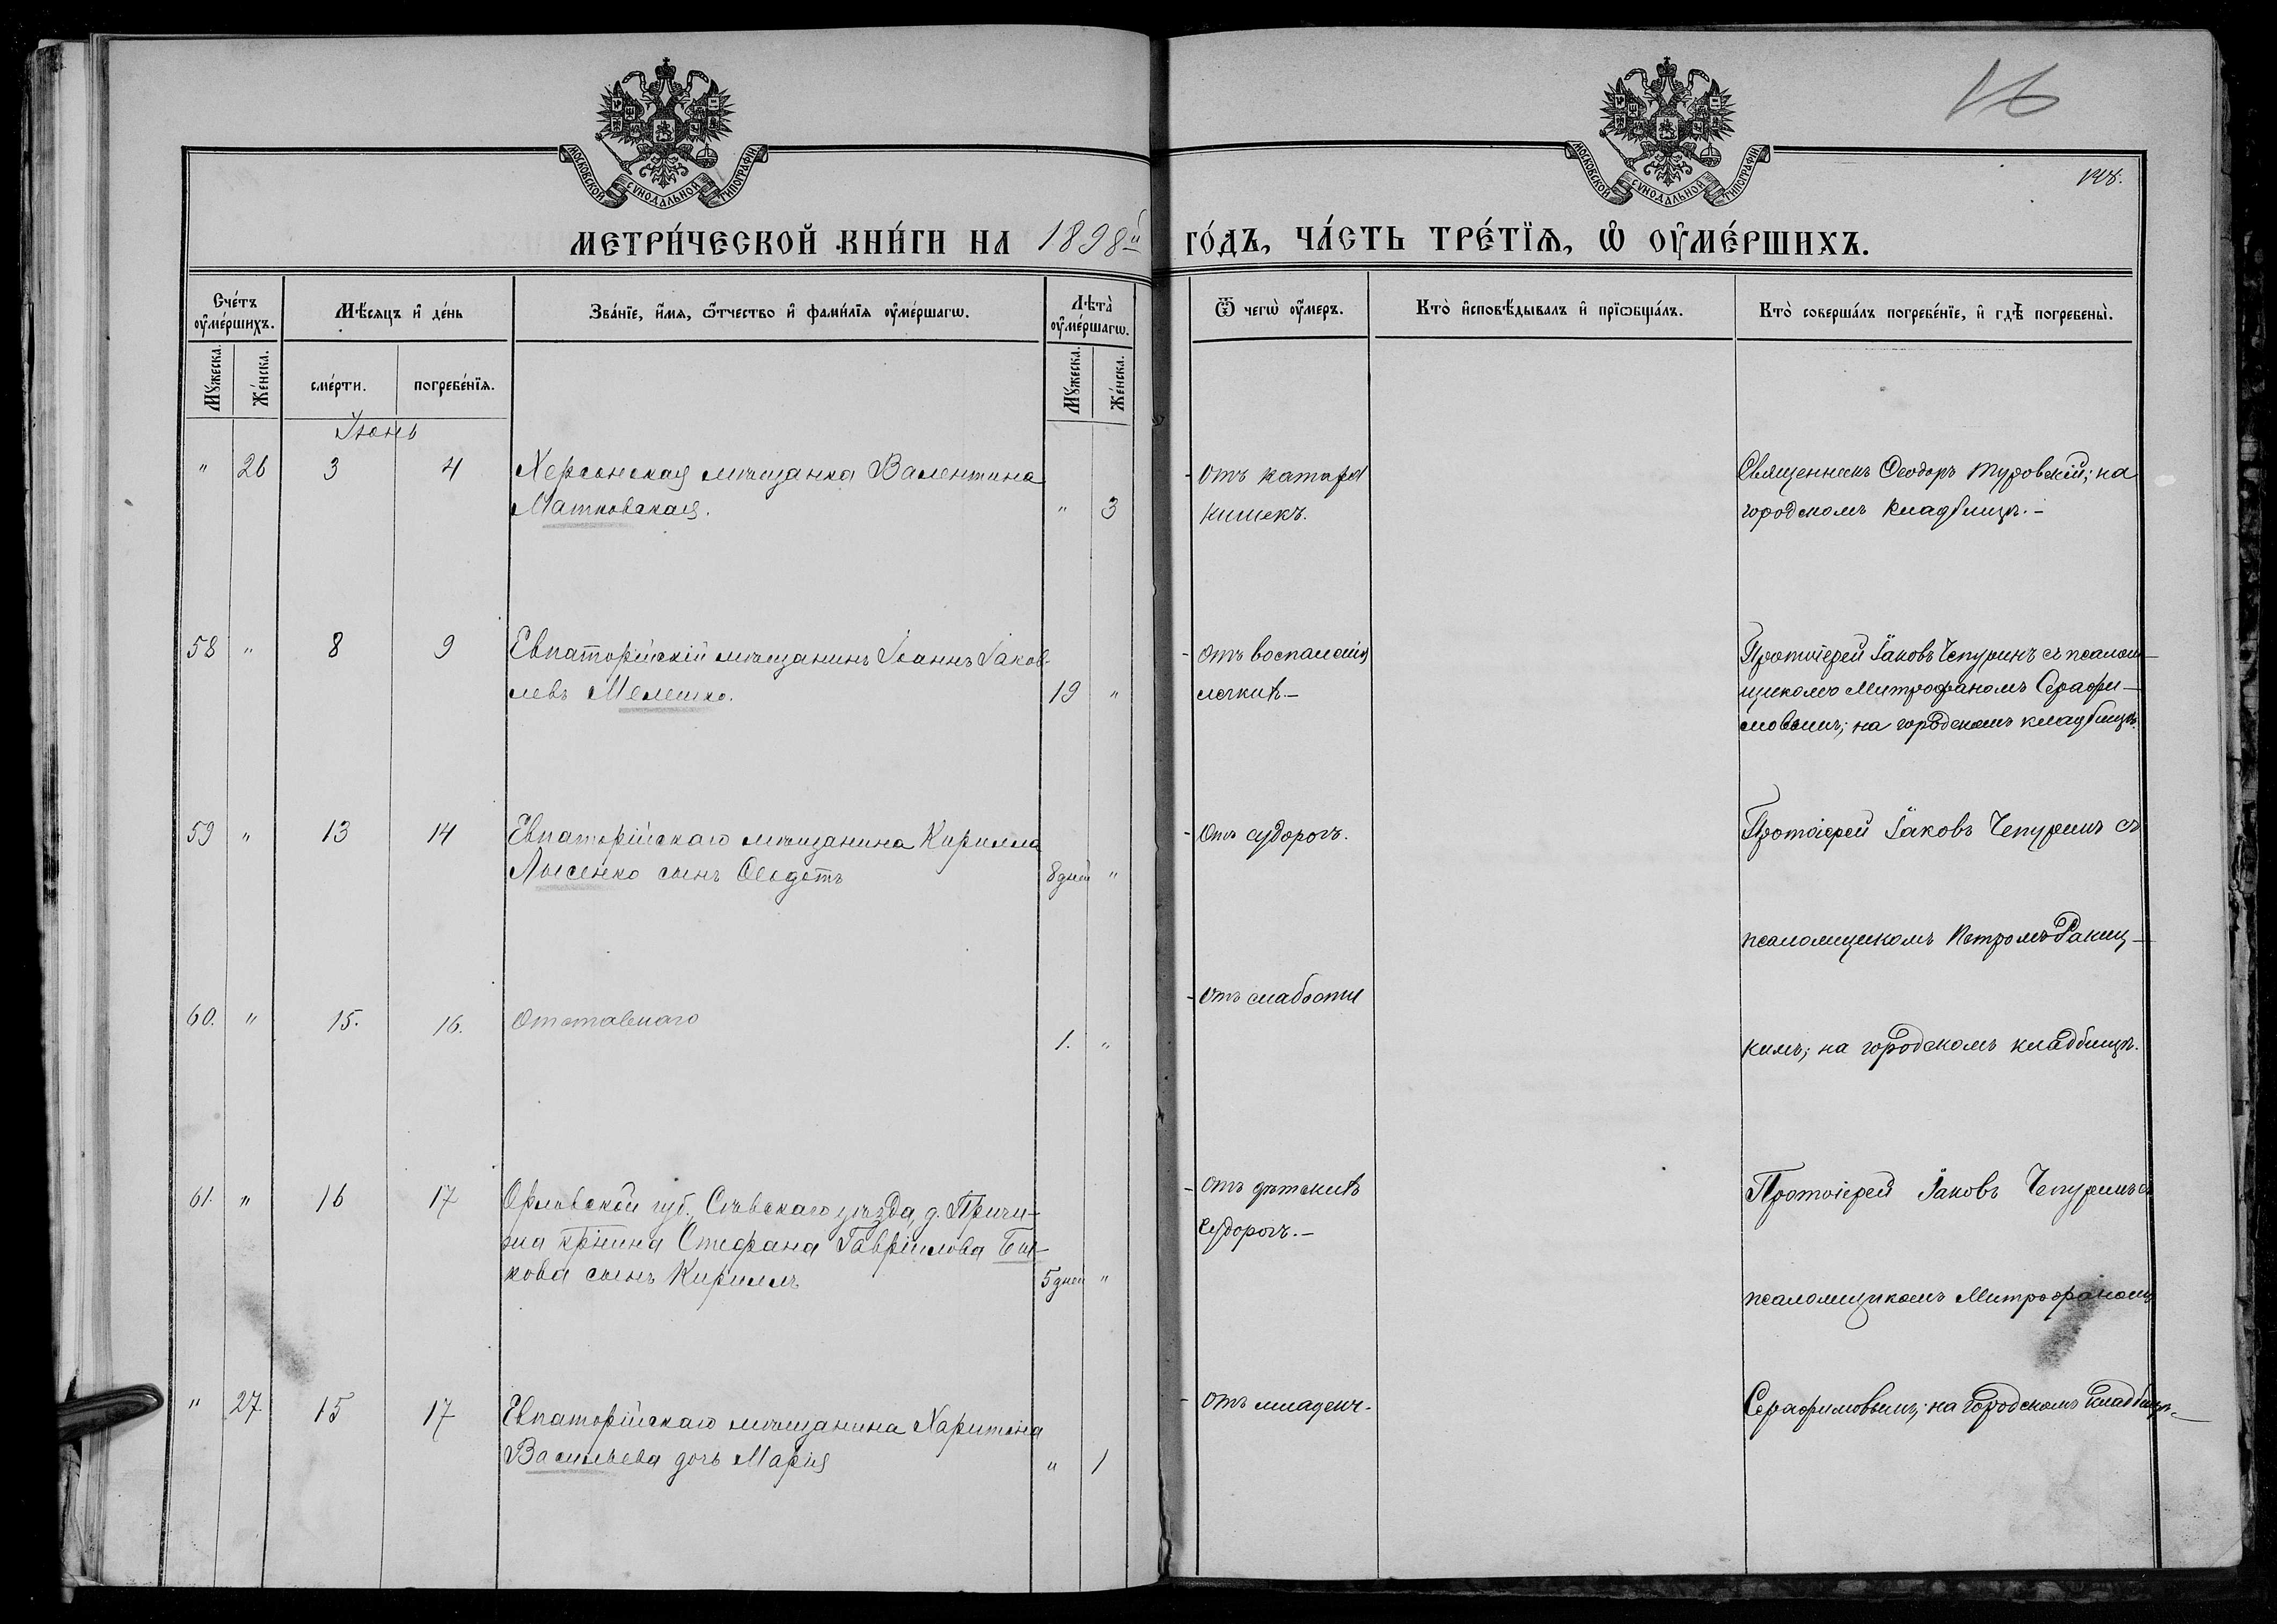 16
148.
МОСКОВСКОЙ СѴНОДАЛЬНОЙ ТИПОГРАФІИ
МОСКОВСКОЙ СѴНОДАЛЬНОЙ ТИПОГРАФІИ
МЕТРИ́ЧЕСКОЙ КНИ́ГИ НА 1898й ГО́ДЪ, ЧА́СТЬ ТРЕ́ТЇѦ, Ѡ҆ ОУ҆МЕ́РШИХЪ.
Сче́тъ оу҆ме́ршихъ.
Мꙋ́жеска.
Же́нска.
Мѣ́сяцъ и҆ де́нь
сме́рти.
погребе́нїѧ.
Зва́нїе, и҆́мѧ, ѻ҆́тчество и҆ фами́лїѧ оу҆ме́ршагѡ.
Лѣта̀ оу҆ме́ршагѡ.
Мꙋ́жеска.
Же́нска.
Ѿ чегѡ̀ оу҆́меръ.
Кто̀ и҆сповѣ́дывалъ и҆ прїѻбща́лъ.
Кто̀ соверша́лъ погребе́нїе, и҆ гдѣ̀ погребены̀.
Іюнь
" 26 3 4 Херсонская мѣщанка Валентина
Матковская. " 3
отъ катара
кишекъ.
Священникъ Ѳеодоръ Туровскій; на
городскомъ кладбищѣ.–
58 " 8 9 Евпаторійскій мѣщанинъ Іоаннъ Іаков-
левъ Мелешко. 19 "
отъ воспаленія
легкихъ.–
Протоіерей Іаковъ Чепуринъ съ псалом–
щикомъ Митрофаномъ Серафи–
мовымъ; на городскомъ кладбищѣ.
59 " 13 14 Евпаторійскаго мѣщанина Кирилла
Лысенко сынъ Ѳеодотъ 8 дней "
отъ судорогъ.
Протоіерей Іаковъ Чепуринъ съ
псаломщикомъ Петромъ Ракиц–
кимъ; на городскомъ кладбищѣ.
60. " 15. 16. Отставнаго
1. "
отъ слабости
61. " 16 17 Орловской губ. Сѣвскаго уѣзда, д.
кр̃нина Стефана Гавріилова Бы-
кова сынъ Кириллъ 5 дней "
отъ дѣтскихъ
судорогъ.–
Протоіерей Іаковъ Чепуринъ съ
псаломщикомъ Митрофаномъ
Серафимовымъ; на городскомъ кладбищѣ.
" 27 15 17 Евпаторійскаго мѣщанина Харитона
Васильева дочь Марія " 1
отъ младенч.